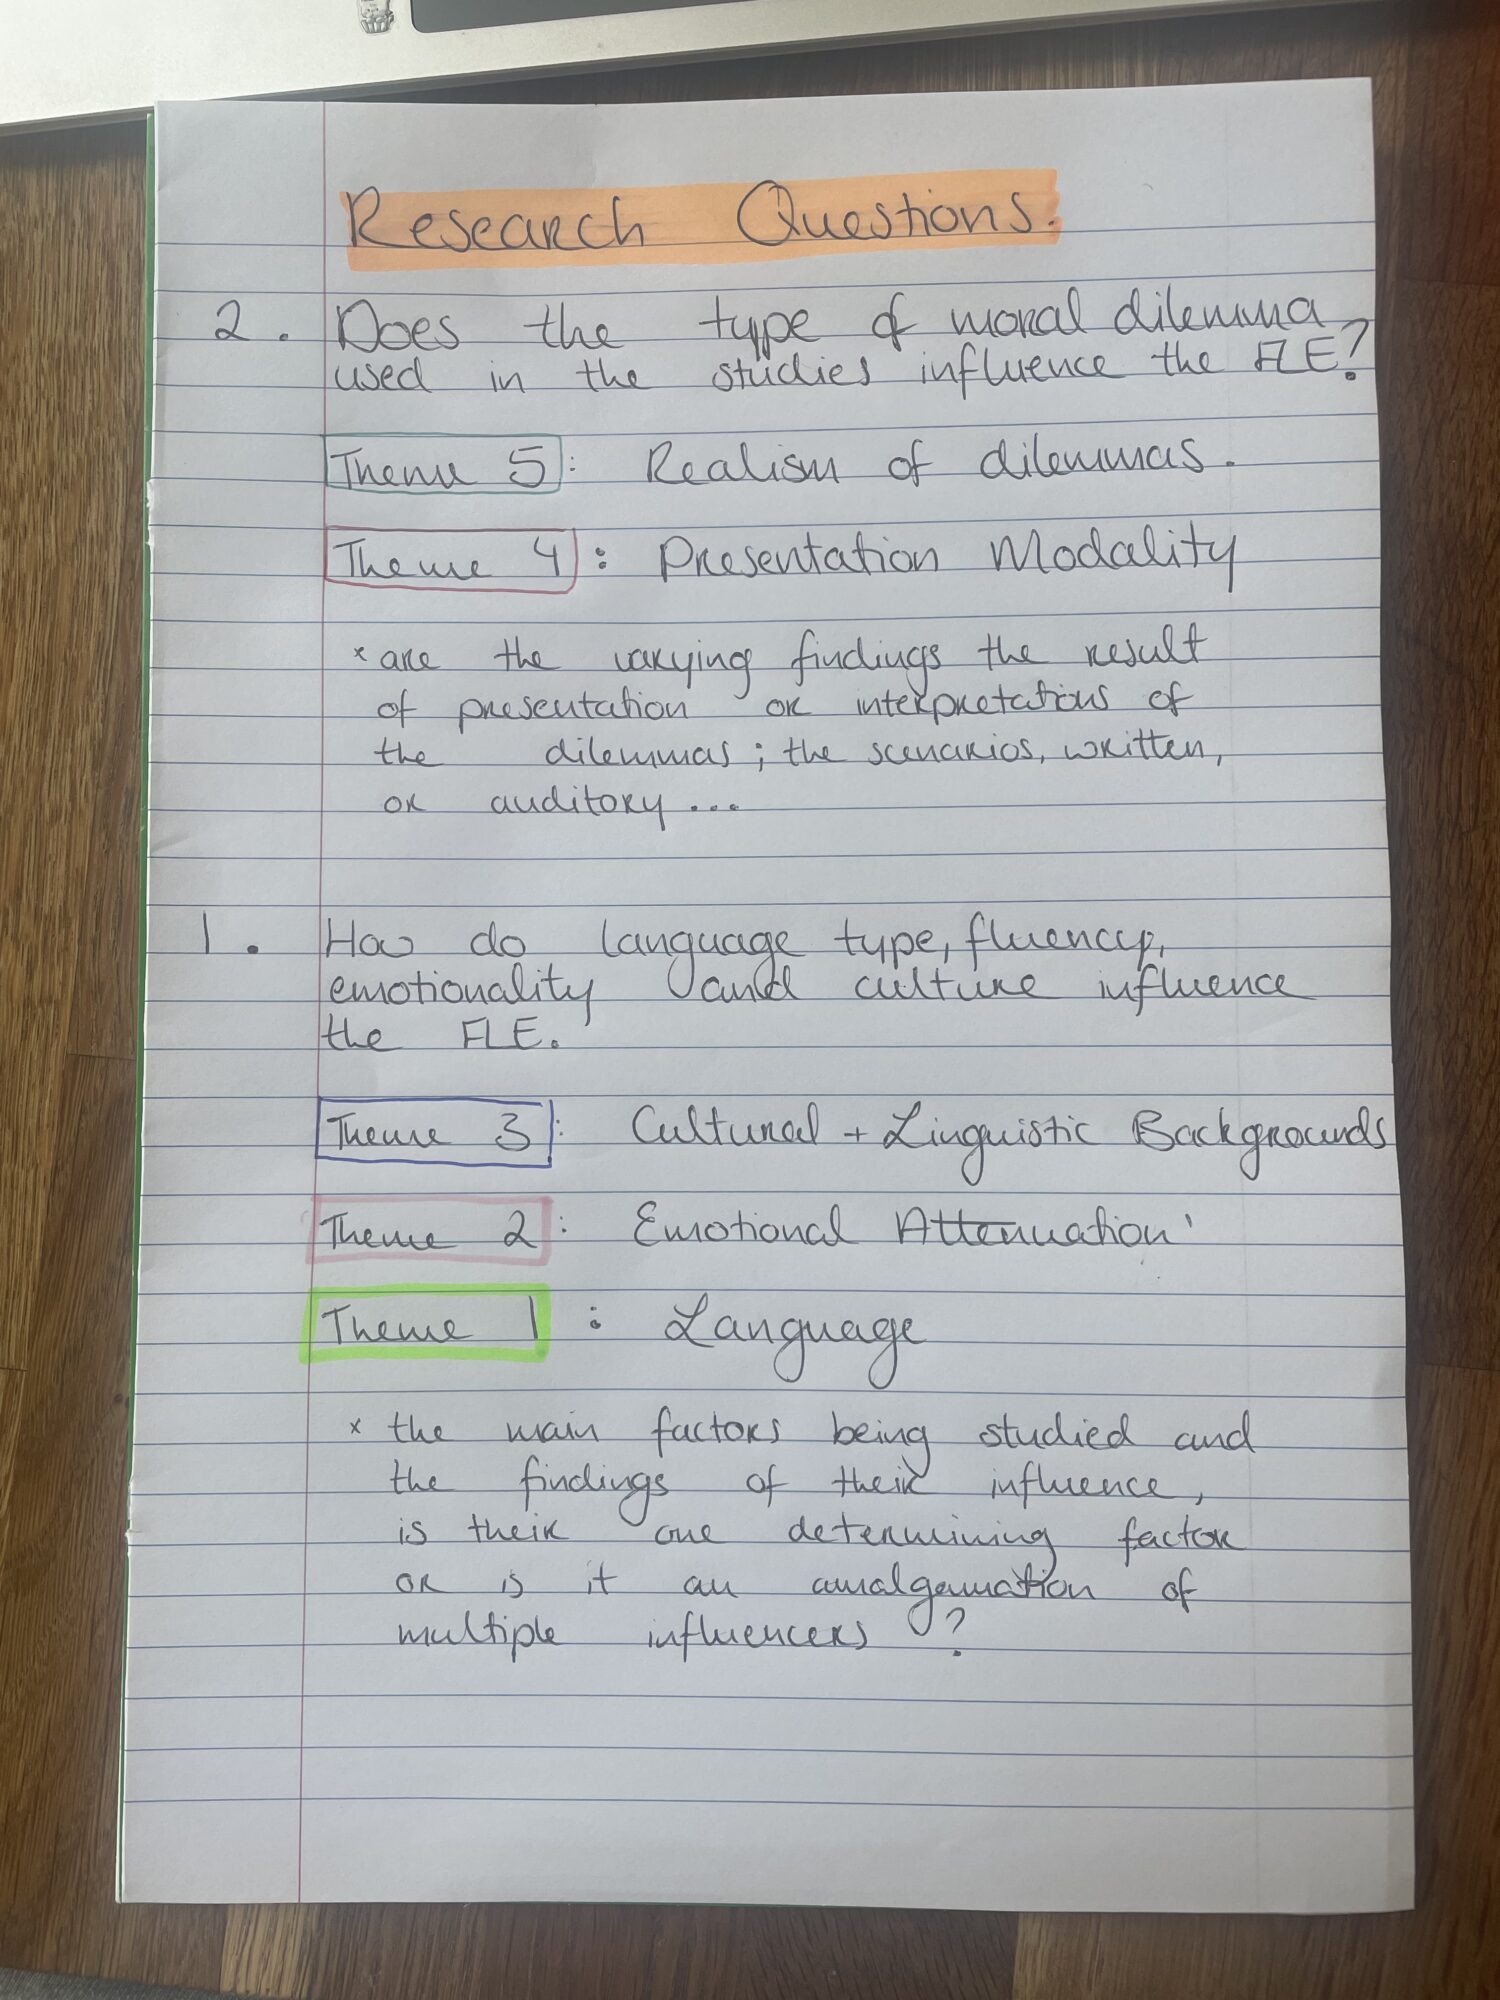 Research Questions.
2. Does the type of moral dilemma
used in the studies influence the FLE?
Theme 5: Realism of dilemmas.
Theme 4: Presentation Modality
* are the varying findings the result
of presentation or interpretations of
the dilemmas; the scenarios, written,
or auditory...
1. How do language type, fluency,
emotionality and culture influence
the FLE.
Theme 3: Cultural + Linguistic Backgrounds
Theme 2: Emotional Attenuation
Theme 1: Language
* the main factors being studied and
the findings of their influence,
is their one determining factor
or is it an amalgamation of
multiple influencers?